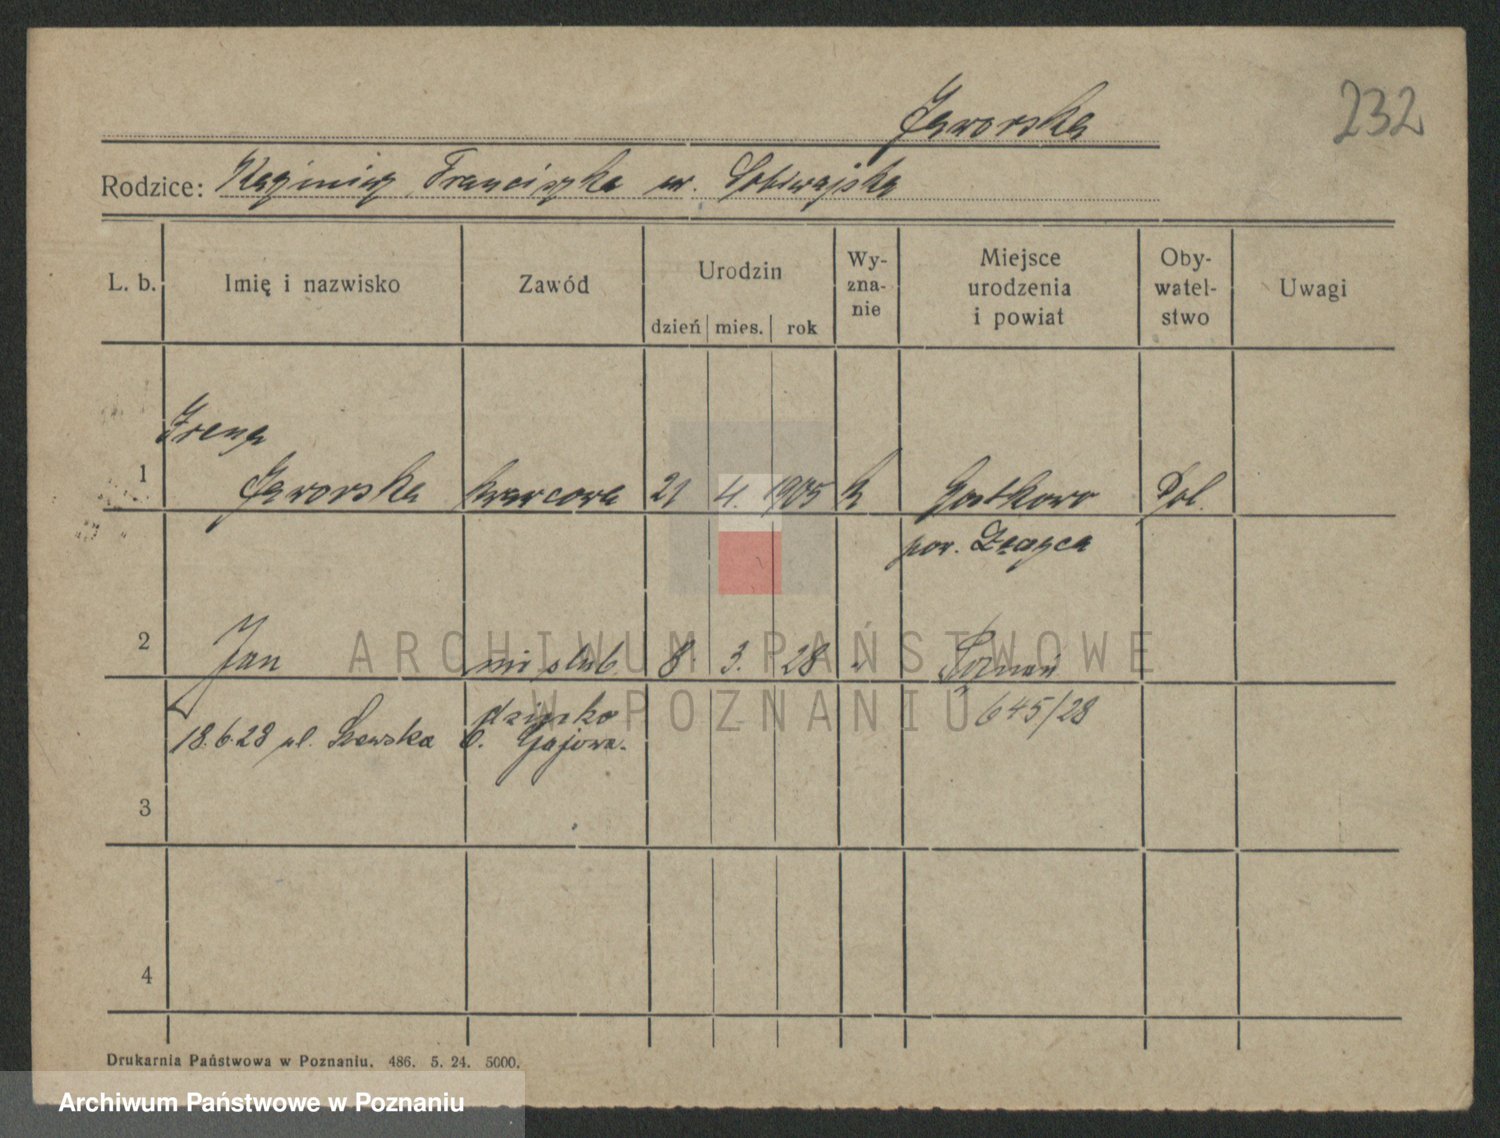 232
Jaworska
Rodzice: Kazimierz Franciszka ur.
L. b. Imię i nazwisko Zawód Urodzin dzień mies. rok Wy-zna-nie Miejsce urodzenia i powiat Oby-watel-stwo Uwagi
Irena
1 Jaworska krawcowa 21 4. 1905 k Gostkowo Pol.
pow.
2 Jan nieślub. 8. 3. 28 " Poznań
dziecko 645/28
18.6.28 ul. Szewska 6. Gajowa.
3
4
Drukarnia Państwowa w Poznaniu. 486. 5. 24. 5000.
ARCHIWUM PAŃSTWOWE
W POZNANIU
Archiwum Państwowe w Poznaniu